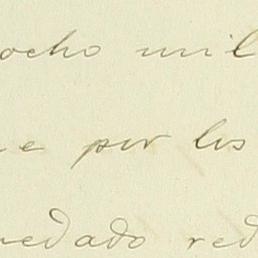 ocho mil
e por los
uedado red